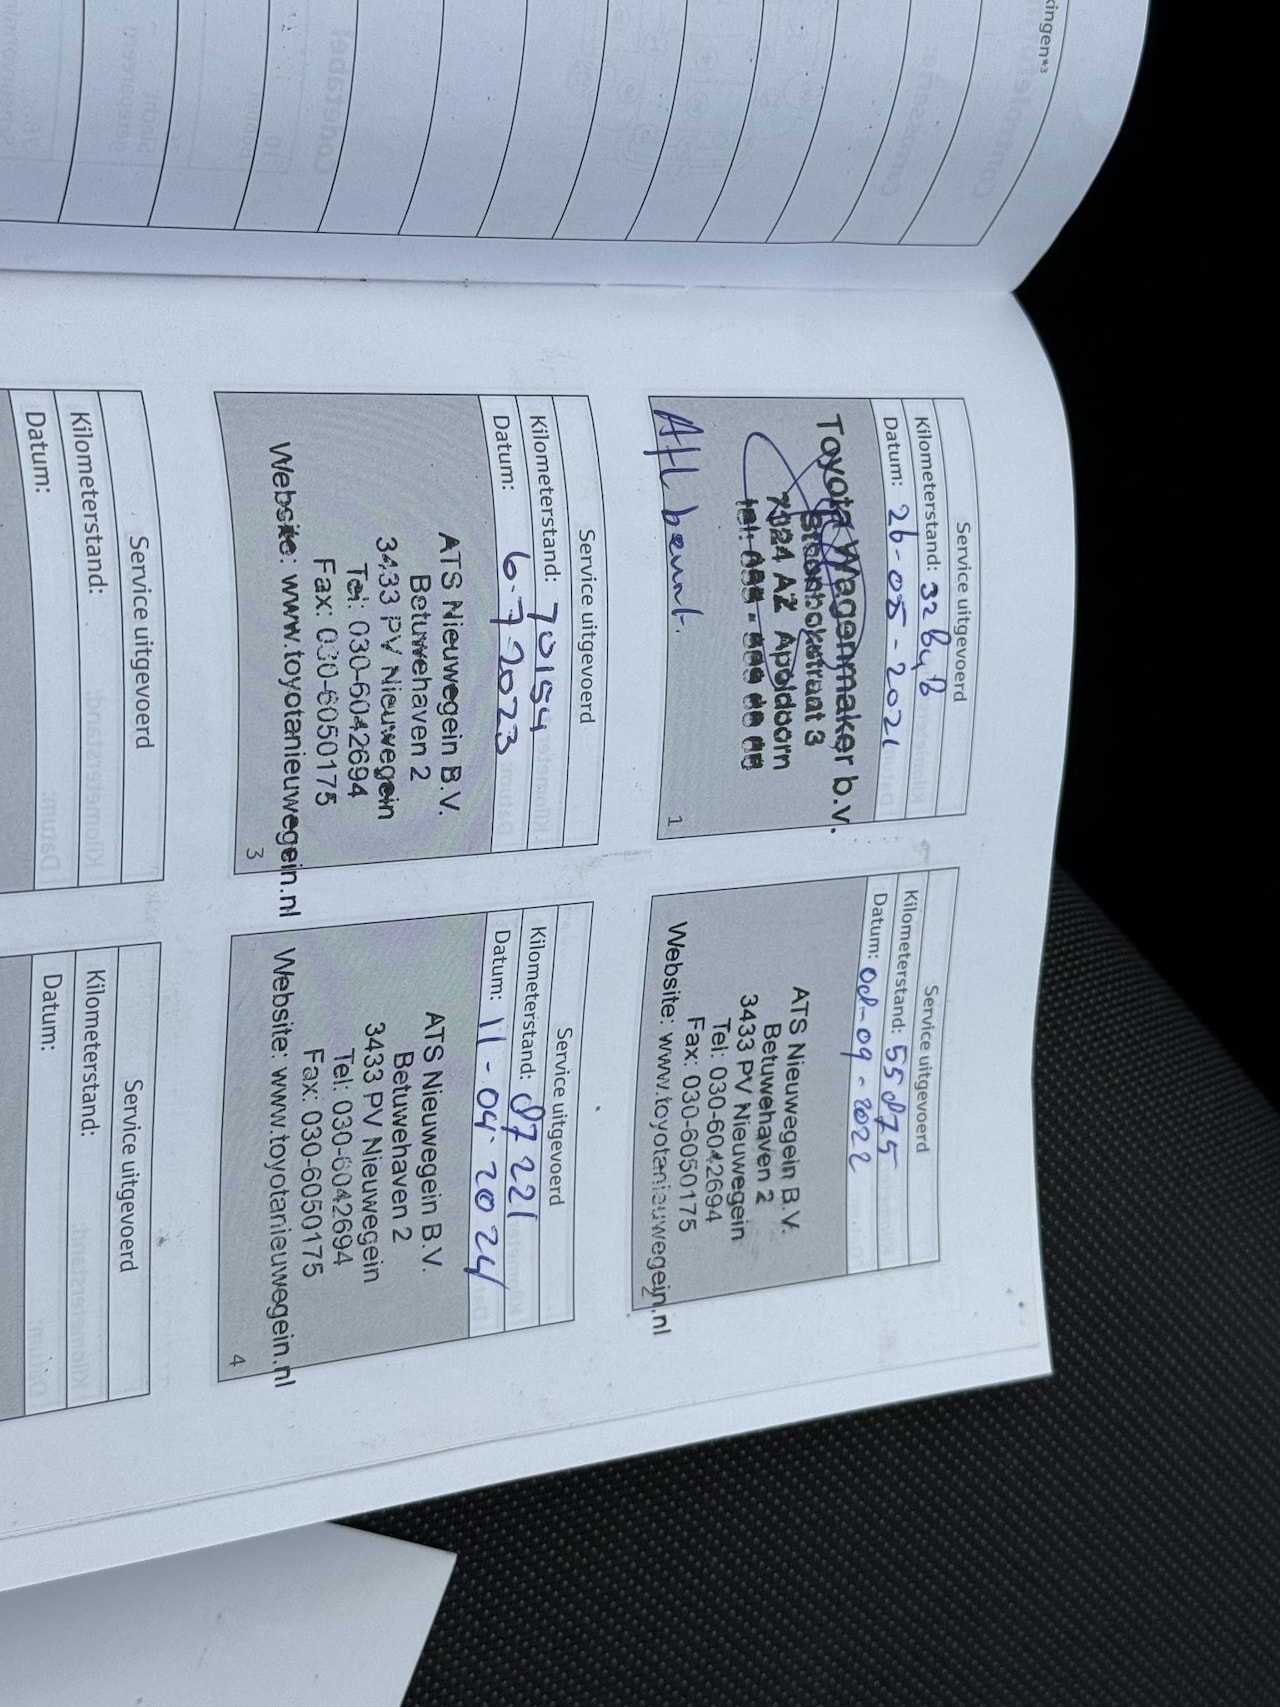 kingen*³
Service uitgevoerd
Kilometerstand:
Datum: 26-05-2021
Toyota Wagenmaker b.v.
Steenbokstraat 3
7324 AZ Apeldoorn
tel:
1
Service uitgevoerd
Kilometerstand: 55875
Datum: 08-09-2022
ATS Nieuwegein B.V.
Betuwehaven 2
3433 PV Nieuwegein
Tel: 030-6042694
Fax: 030-6050175
Website: www.toyotanieuwegein.nl
2
Service uitgevoerd
Kilometerstand: 70154
Datum: 6-7-2023
ATS Nieuwegein B.V.
Betuwehaven 2
3433 PV Nieuwegein
Tel: 030-6042694
Fax: 030-6050175
Website: www.toyotanieuwegein.nl
3
Service uitgevoerd
Kilometerstand: 87221
Datum: 11-04-2024
ATS Nieuwegein B.V.
Betuwehaven 2
3433 PV Nieuwegein
Tel: 030-6042694
Fax: 030-6050175
Website: www.toyotanieuwegein.nl
4
Service uitgevoerd
Kilometerstand:
Datum:
Service uitgevoerd
Kilometerstand:
Datum: